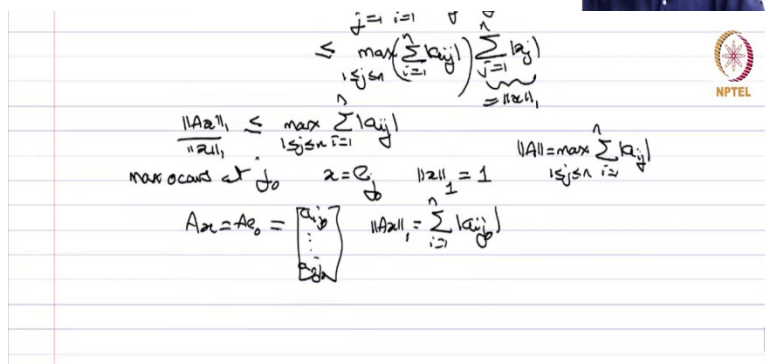 j=1 i=1
≤ max_{1≤j≤n} (∑_{i=1}^{n} |aij|) ∑_{j=1}^{n} |xj|
= ||x||₁
NPTEL
||Ax||₁ / ||x||₁ ≤ max_{1≤j≤n} ∑_{i=1}^{n} |aij|
||A|| = max_{1≤j≤n} ∑_{i=1}^{n} |aij|
max occurs at j₀ x = e_{j₀} ||x||₁ = 1
Ax = Ae₀ = [a_{1j₀} ⋮ a_{nj₀}] ||Ax||₁ = ∑_{i=1}^{n} |a_{ij₀}|